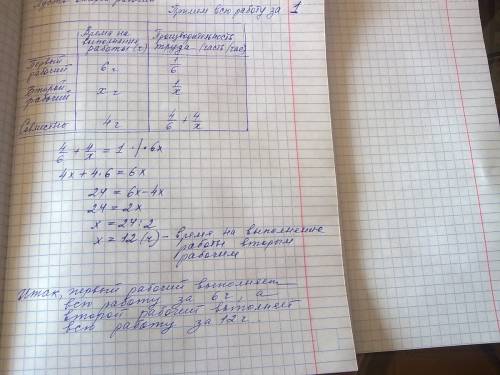 Пусть второй рабочий
Примем всю работу за 1
Время на выполнение работы (ч)
Производительность труда (часть/час)
Первый рабочий 6 ч 1/6
Второй рабочий x ч 1/x
Совместно 4 ч 4/6 + 4/x
4/6 + 4/x = 1 | · 6x
4x + 4·6 = 6x
24 = 6x - 4x
24 = 2x
x = 24 : 2
x = 12 (ч) - время на выполнение
работы вторым
рабочим
Итак, первый рабочий выполняет
всю работу за 6 ч, а
второй рабочий выполняет
всю работу за 12 ч.